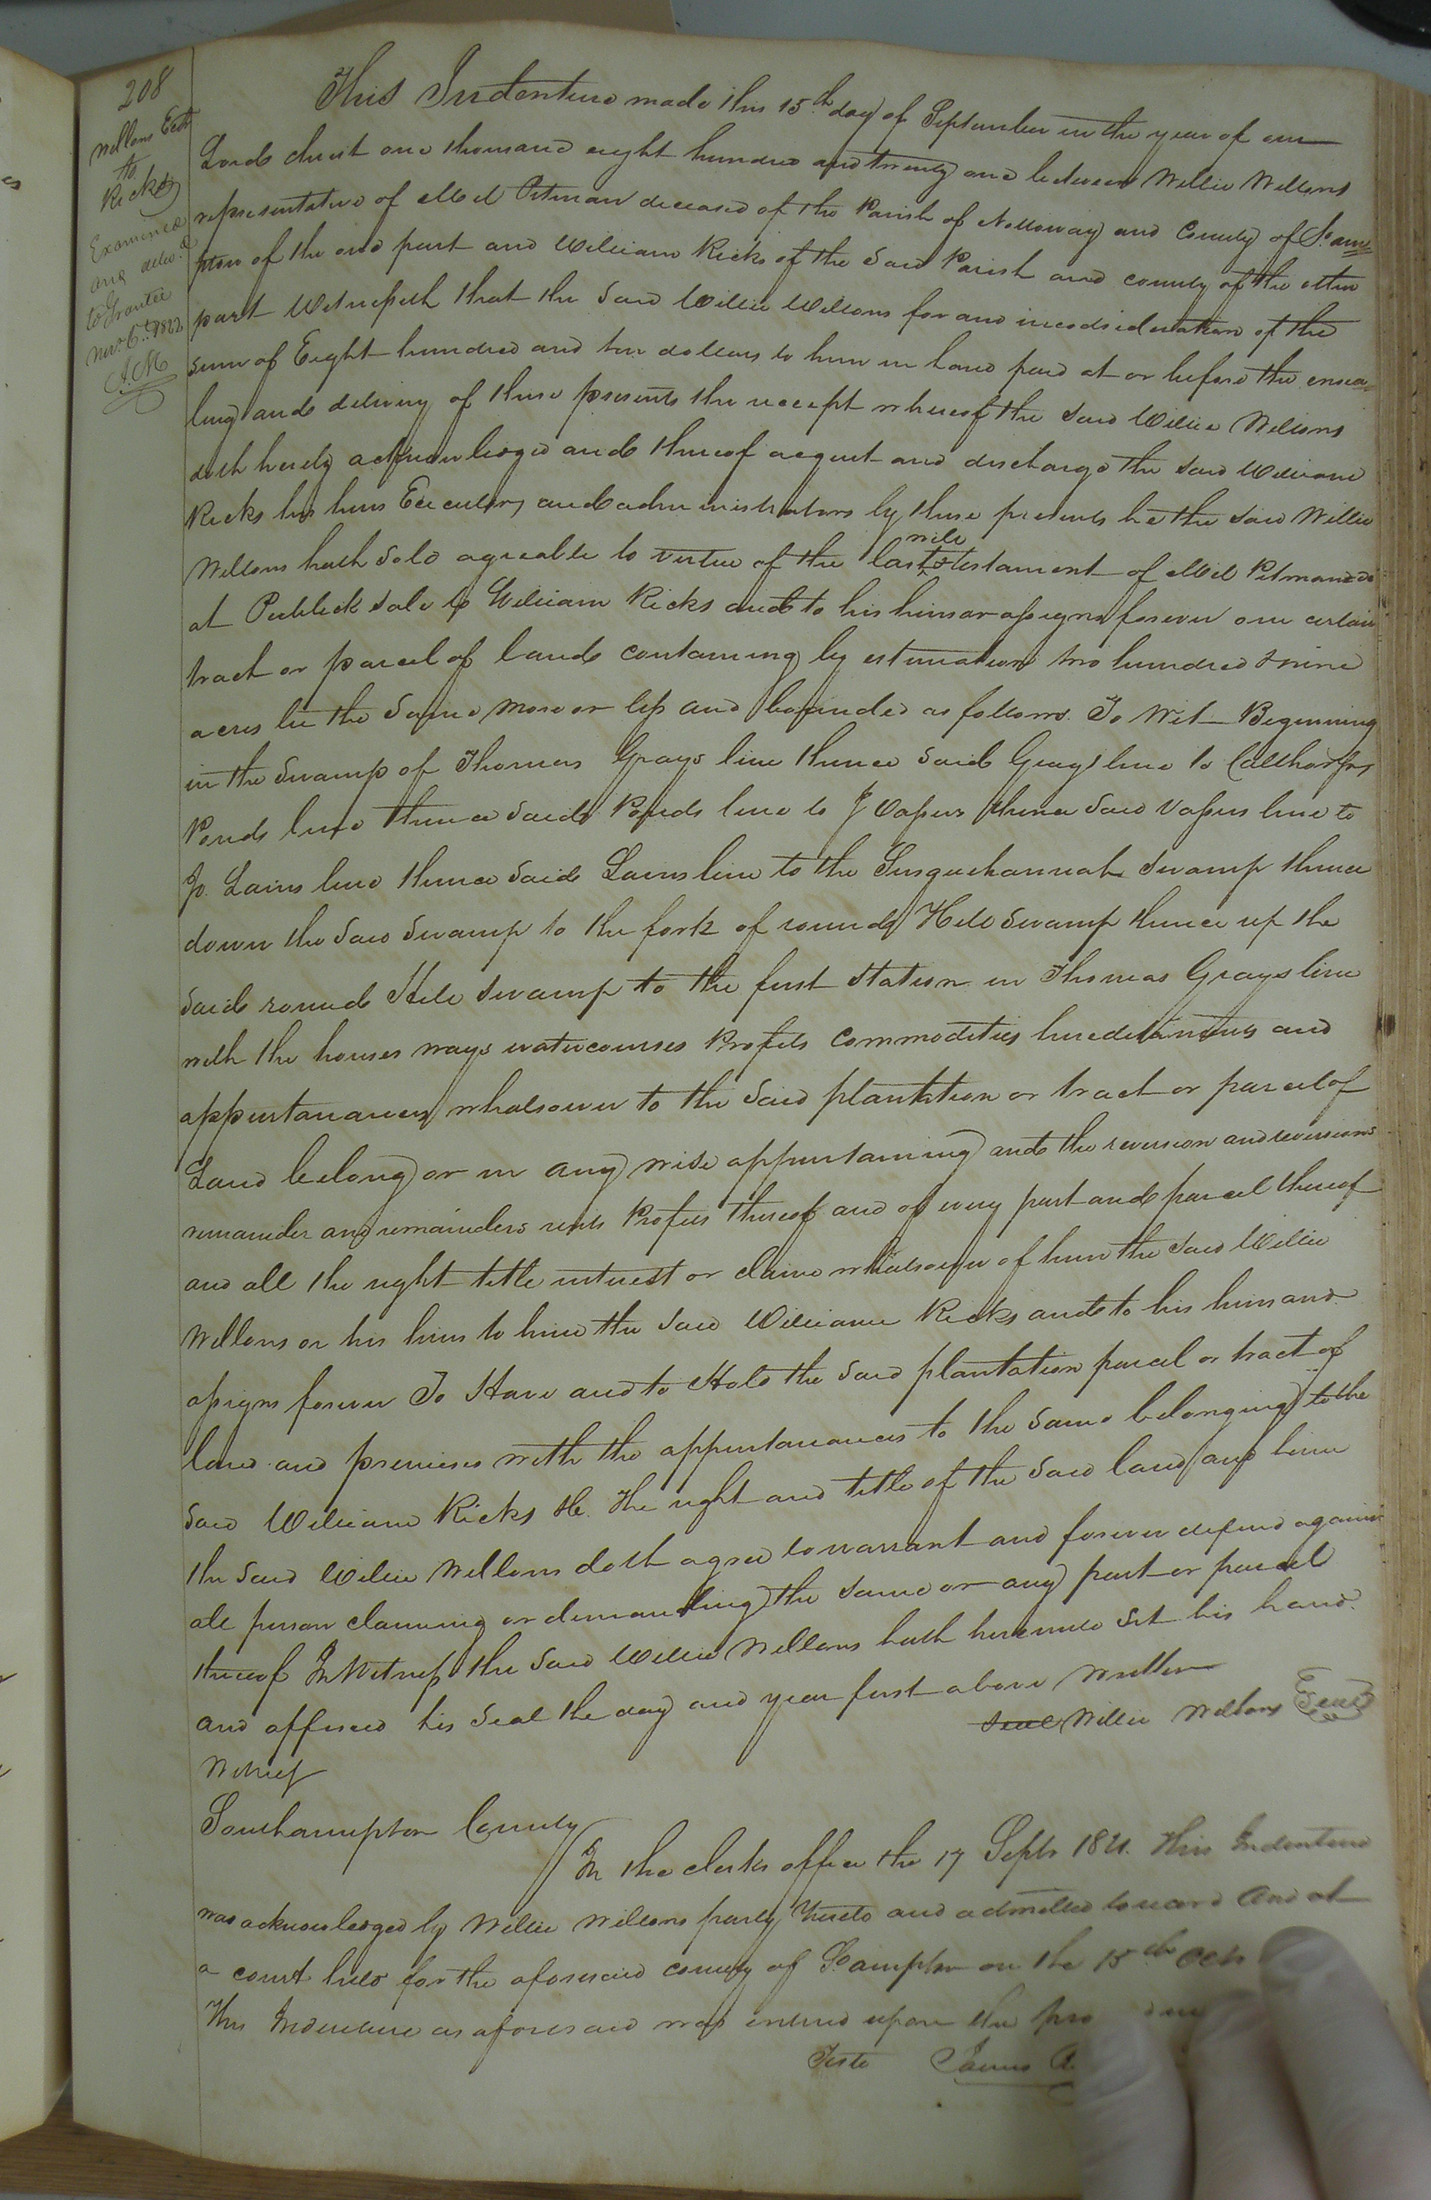 208
Wellons Exr
to
Ricks
Examined
and deliv.d
to Grantee
Nov. 6th 1822
J.M
This Indenture made this 15th day of September in the year of our
Lord christ one thousand eight hundred and twenty one between Willie Wellons
representative of Abed Pitman deceased of the Parish of Nottoway and County of S.amp
pton of the one part and William Ricks of the Said Parish and county of the other
part Witnesseth that the Said Willie Wellons for and inconsideration of the
sum of Eight hundred and ten dollars to him in hand paid at or before the ensea-
ling and delivery of these presents the receipt whereof the Said Willie Wellons
doth hereby acknowledged and thereof acquit and discharge the Said William
Ricks his heirs Executors and administrators by these presents he the said Willie
Wellons hath Sold agreable to virtue of the last will & testament of Abed Pitman
at Publick Sale to William Ricks and to his heirs or assigns forever one certain
tract or parcel of land containing by estimation two hundred & nine
acres be the Same more or less and bounded as follows. To Wit Beginning
in the Swamp of Thomas Grays line thence Said Grays line to Calthorps
Ponds line thence Said Ponds line to J Vapers thence Said Vapers line to
Jo. Lains line thence Said Lains line to the Susquehannah Swamp thence
down the Said Swamp to the fork of round Hill Swamp thence up the
Said round Hill Swamp to the first Station in Thomas Grays line
with the houses ways watercourses Profits commodities hereditaments and
appurtanances whatsoever to the Said plantation or tract or parcel of
Land belong or in any wise appurtaining and the reversion and reversions
remainder and remainders rents Profits thereof and of every part and parcel thereof
and all the right title interest or claim whatsoever of him the Said Willie
Wellons or his heirs to him the Said William Ricks and to his heirs and
assigns forever To Have and to Hold the Said plantation parcel or tract of
land and premises with the appurtanances to the Same belonging to the
Said William Ricks &c. The right and title of the Said land and him
the Said Willie Wellons doth agree to warrant and forever defend against
all person claiming or demanding the Same or any part or parcel
thereof In Witness the Said Willie Wellons hath hereunto Set his hand
and affixed his Seal the day and year first above written
Seal Willie Wellons Seal
Witness
Southampton County
In the clerks office the 17 Septr 1821. This Indenture
was acknowledged by Willie Wellons party thereto and admitted to record And at
a court held for the aforesaid county of S.ampton on the 15th Octr
This Indenture as aforesaid was entered upon the pro
Teste James